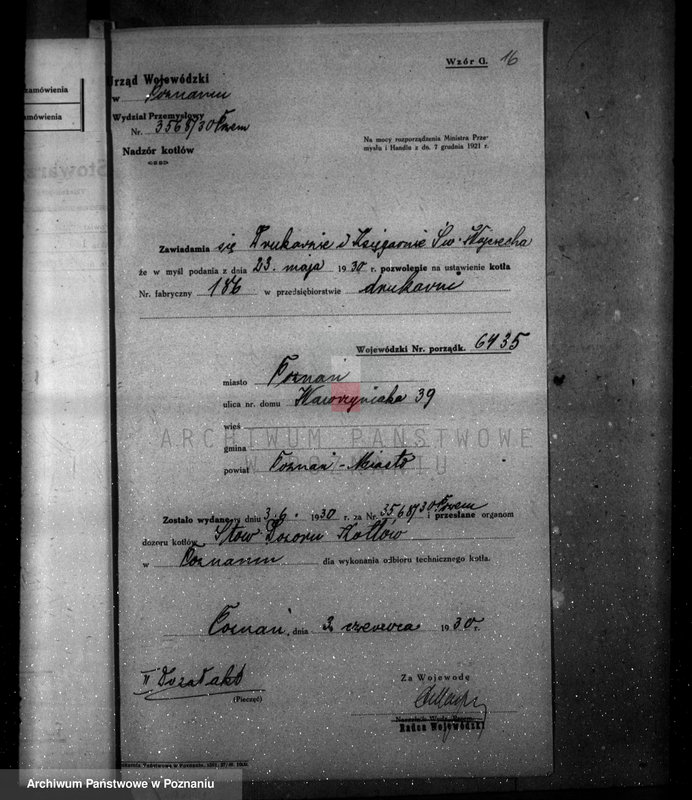 zamówienia
amówienia
Stowarz
Wzór G. 16
Urząd Wojewódzki
w Poznaniu
Wydział Przemysłowy
Nr. 3568/30 Przem
Nadzór kotłów
Na mocy rozporządzenia Ministra Prze-
mysłu i Handlu z dn. 7 grudnia 1921 r.
Zawiadamia się Drukarnie i Księgarnie Św. Wojciecha
że w myśl podania z dnia 23. maja 1930 r. pozwolenie na ustawienie kotła
Nr. fabryczny 186 w przedsiębiorstwie drukarni
Wojewódzki Nr. porządk. 6435
miasto Poznań
ulica nr. domu Wawrzyniaka 39
wieś
gmina
powiat Poznań - Miasto
ARCHIWUM PAŃSTWOWE
W POZNANIU
Zostało wydane w dniu 3.6. 1930 r. za Nr. 3568/30 Przem i przesłane organom
dozoru kotłów Stow. Dozoru Kotłów
w Poznaniu dla wykonania odbioru technicznego kotła.
Poznań, dnia 3. czerwca 1930 r.
Za Wojewodę
(Pieczęć)
Radca Wojewódzki
Archiwum Państwowe w Poznaniu